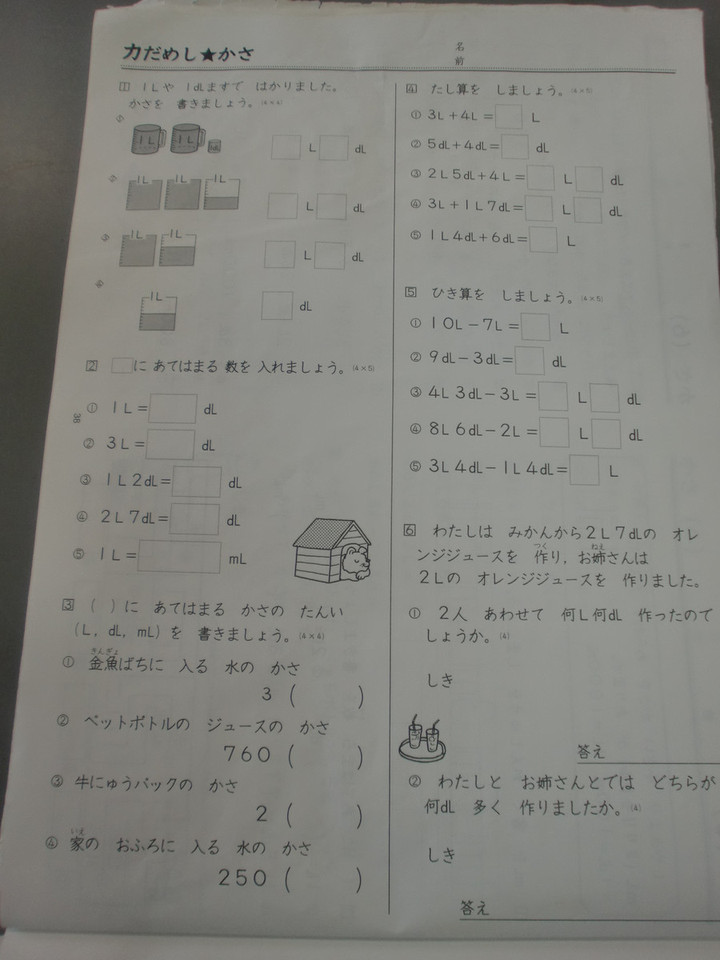 力だめし★かさ
名
前
1 1Lや 1dLますで はかりました。
かさを 書きましょう。(4×4)
① L dL
1L 1L
② L dL
1L 1L 1L
③ L dL
1L 1L
④ dL
1L
2 □に あてはまる 数を 入れましょう。(4×5)
① 1L= dL
② 3L= dL
③ 1L2dL= dL
④ 2L7dL= dL
⑤ 1L= mL
3 ( )に あてはまる かさの たんい
(L, dL, mL)を 書きましょう。(4×4)
きんぎょ
① 金魚ばちに 入る 水の かさ
3 ( )
② ペットボトルの ジュースの かさ
760 ( )
③ 牛にゅうパックの かさ
2 ( )
いえ
④ 家の おふろに 入る 水の かさ
250 ( )
4 たし算を しましょう。(4×5)
① 3L+4L= L
② 5dL+4dL= dL
③ 2L5dL+4L= L dL
④ 3L+1L7dL= L dL
⑤ 1L4dL+6dL= L
5 ひき算を しましょう。(4×5)
① 10L-7L= L
② 9dL-3dL= dL
③ 4L3dL-3L= L dL
④ 8L6dL-2L= L dL
⑤ 3L4dL-1L4dL= L
6 わたしは みかんから2L7dLの オレ
つく ねえ
ンジジュースを 作り,お姉さんは
2Lの オレンジジュースを 作りました。
① 2人 あわせて 何L何dL 作ったので
しょうか。(4)
しき
答え
② わたしと お姉さんとでは どちらが
何dL 多く 作りましたか。(4)
しき
答え